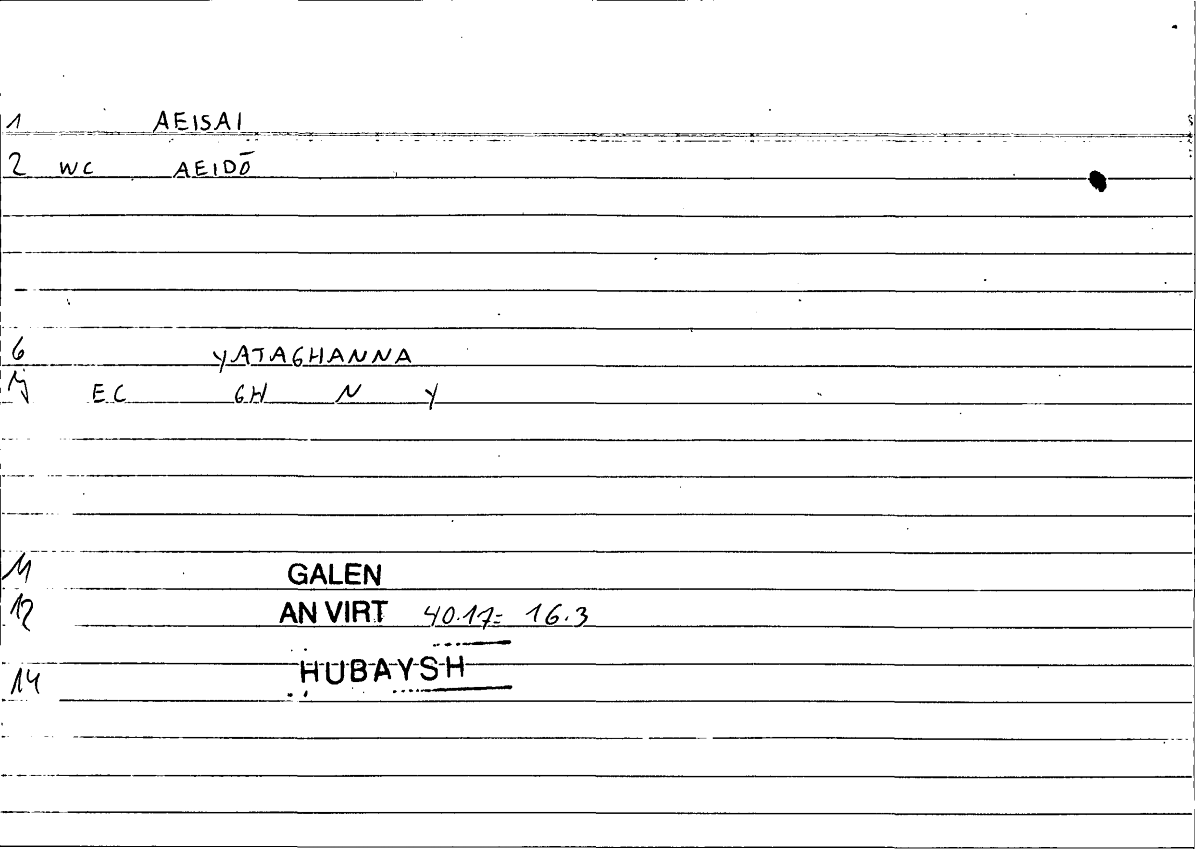 1 AEISAI
2 WC AEIDŌ
6 YATAGHANNA
EC GH N Y
11 GALEN
12 AN VIRT 40.17= 16.3
14 HUBAYSH